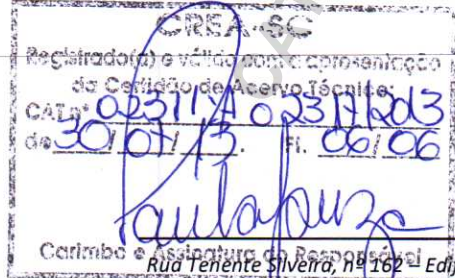 CREA-SC
Registrado(a) e válido com a apresentação
da Certidão de Acervo Técnico:
CAT nº
de 30/07/13. Fl. 06/06
Carimbo e Assinatura do Responsável
Rua Tenente Silveira, nº 162 – Edi